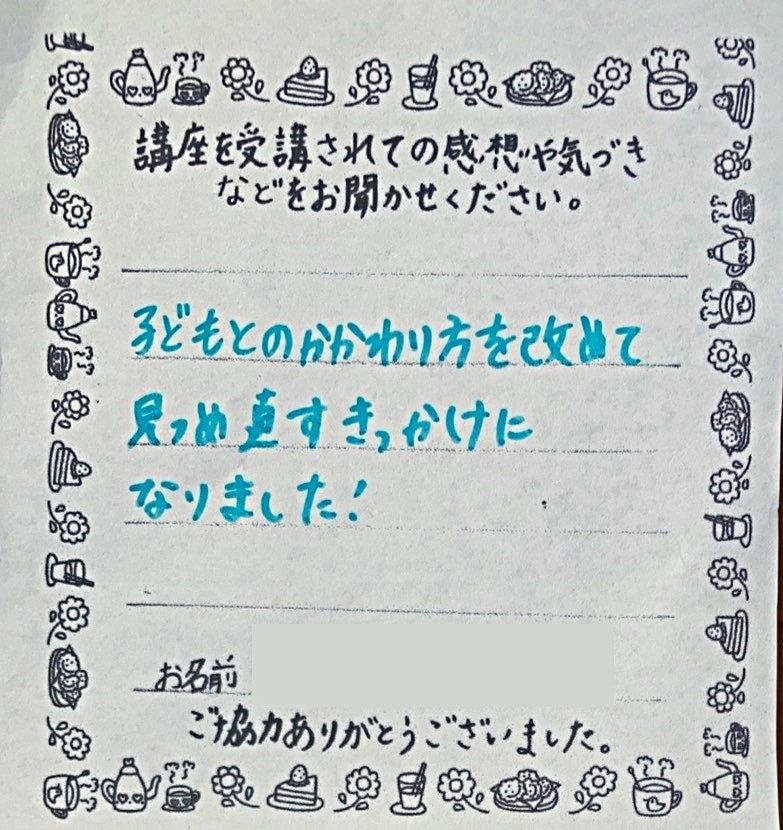 講座を受講されての感想や気づき
などをお聞かせください。
子どもとのかかわり方を改めて
見つめ直すきっかけに
なりました!
お名前
ご協力ありがとうございました。